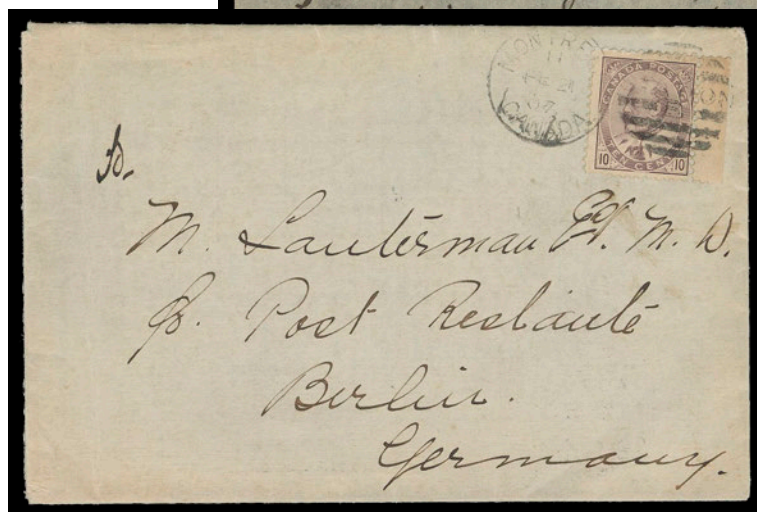 MONTRE
11
FE 2
04
CANADA
CANADA POSTAGE
10 TEN CENTS 10
To.
M. Lauterman Esq. M. D.
Post Restante
Berlin.
Germany.